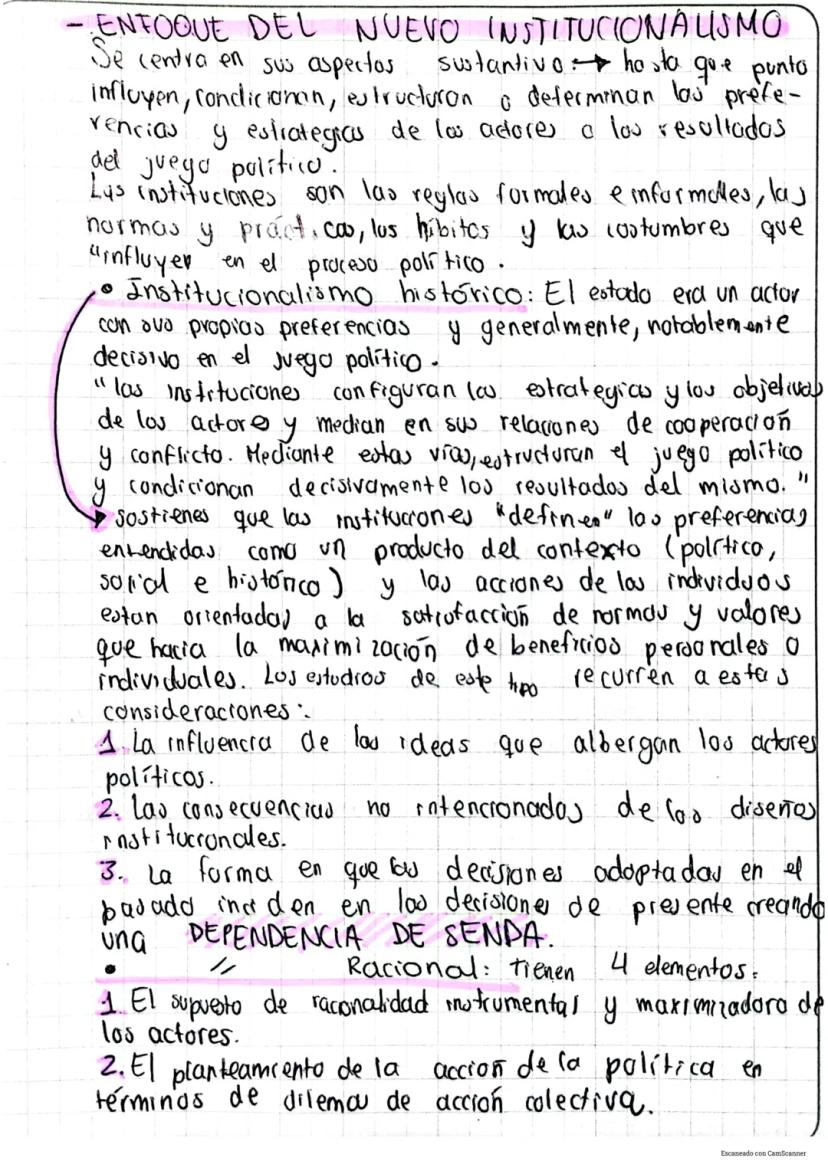 - ENFOQUE DEL NUEVO INSTITUCIONALISMO
Se centra en sus aspectos sustantivo: → hasta que punto
influyen, condicionan, estructuran o determinan las prefe-
rencias y estrategias de los actores o los resultados
del juego político.
Las instituciones son las reglas formales e informales, las
normas y prácticas, los hibitos y las costumbres que
"influyen en el proceso político.
• Institucionalismo histórico: El estado era un actor
con sus propias preferencias y generalmente, notablemente
decisivo en el juego político.
"las instituciones configuran las estrategias y los objetivos
de los actores y median en sus relaciones de cooperación
y conflicto. Mediante estas vías, estructuran el juego político
y condicionan decisivamente los resultados del mismo."
sostienes que las instituciones "definen" las preferencias
entendidas como un producto del contexto (político,
social e histórico) y las acciones de los individuos
estan orientadas a la satisfacción de normas y valores
que hacia la maximización de beneficios personales o
individuales. Los estudios de este tipo recurren a estas
consideraciones:
1. La influencia de las ideas que albergan los actores
políticos.
2. Las consecuencias no intencionados de los diseños
institucionales.
3. La forma en que las decisiones adoptadas en el
pasado inciden en las decisiones de presente creando
una DEPENDENCIA DE SENDA.
• // Racional: Tienen 4 elementos:
1. El supuesto de racionalidad instrumental y maximizadora de
los actores.
2. El planteamiento de la acción de la política en
términos de dilemas de acción colectiva.
Escaneado con CamScanner